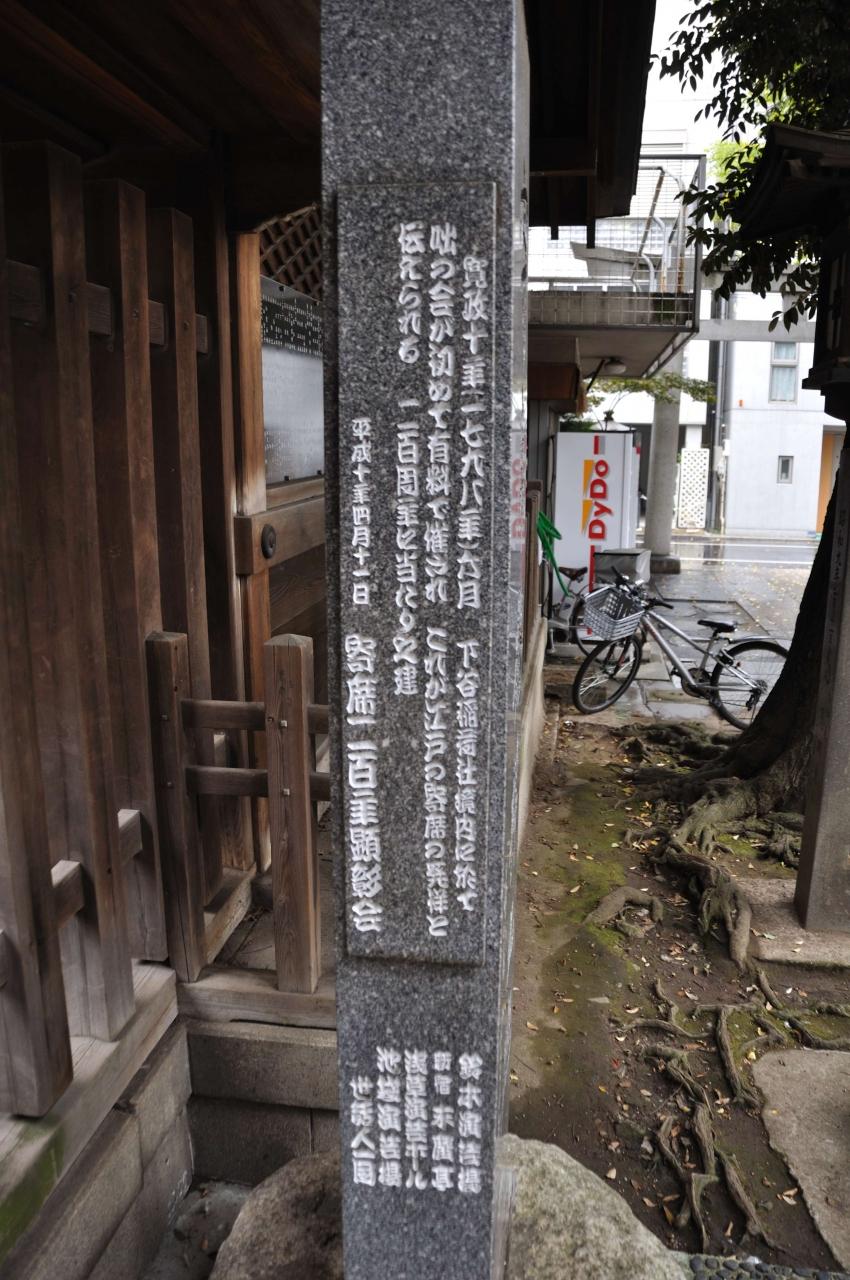 寛政十年一七九八年六月 下谷稲荷社境内に於て
咄の会が初めて有料で催され これが江戸の寄席の発祥と
伝えられる 二百周年に当たり之建
平成十年四月十一日 寄席二百年顕彰会
鈴本演芸場
新宿 末廣亭
浅草演芸ホール
池袋演芸場
世話人一同
DyDo